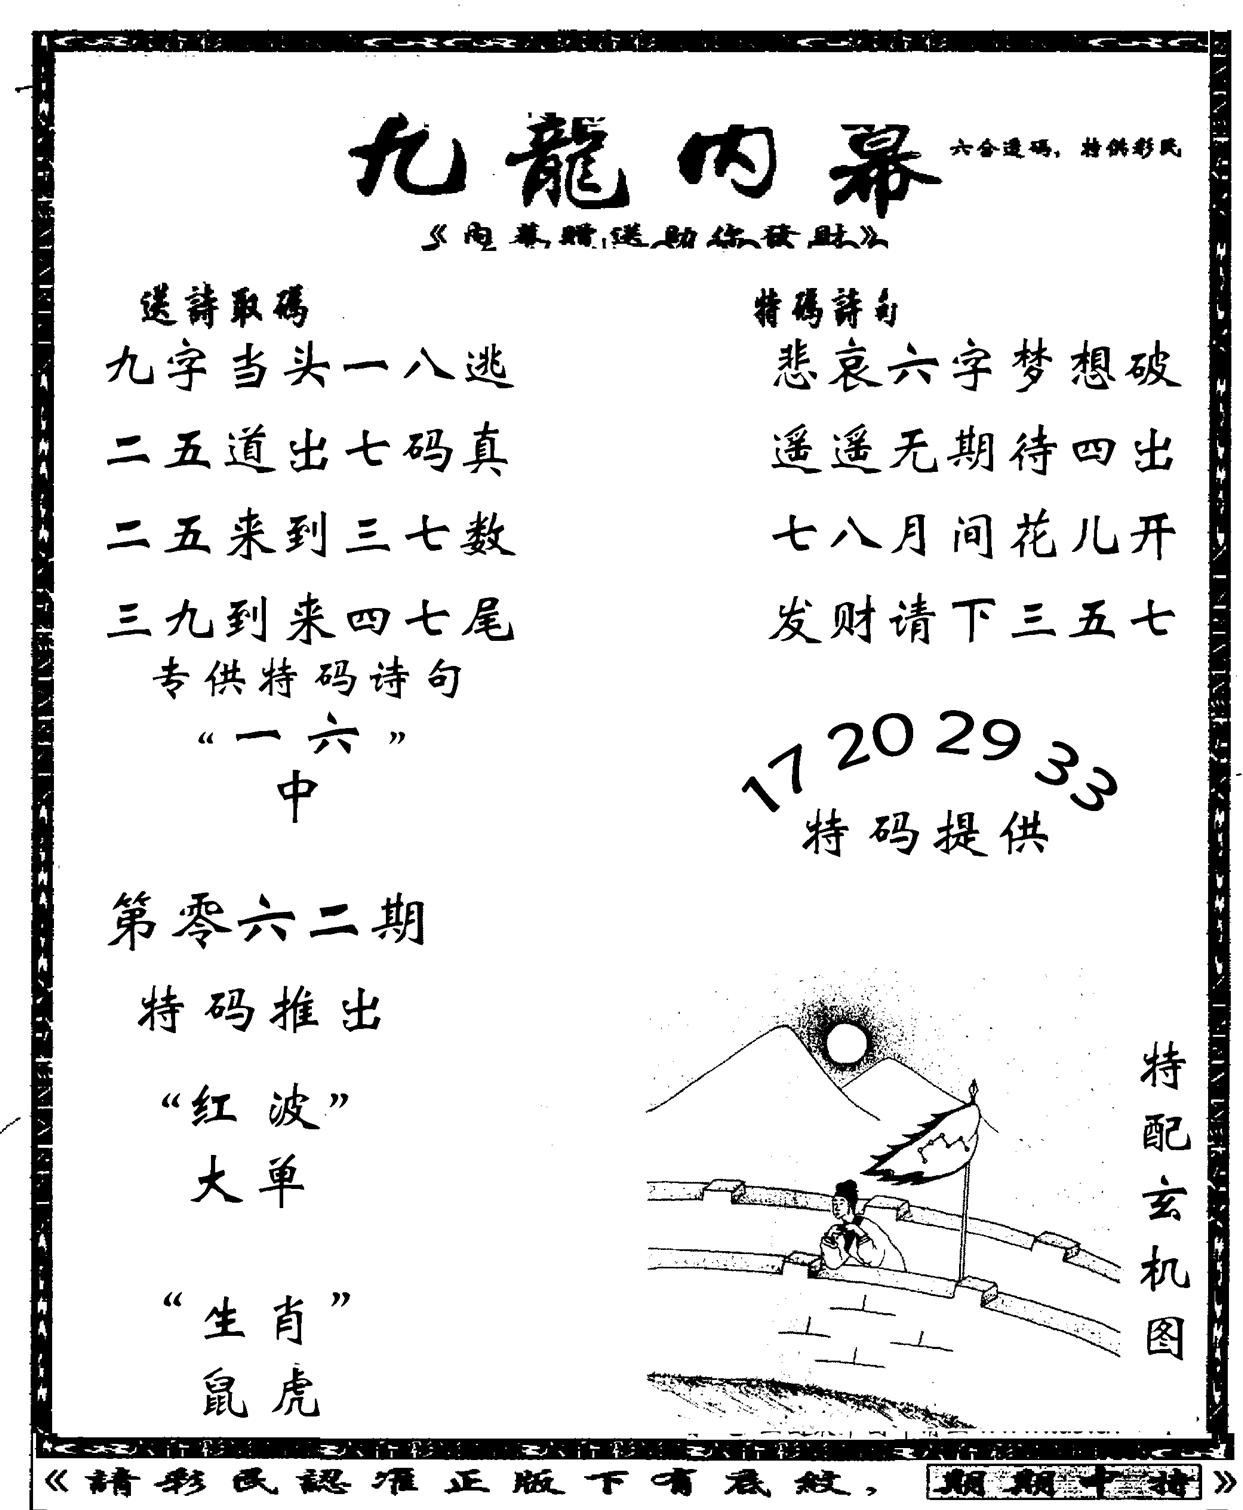 九龍内幕
六合透码，特供彩民
《内幕贈送助你發財》
送詩取碼
九字当头一八逃
二五道出七码真
二五来到三七数
三九到来四七尾
专供特码诗句
“一六”
中
特碼詩句
悲哀六字梦想破
遥遥无期待四出
七八月间花儿开
发财请下三五七
17 20 29 33
特码提供
第零六二期
特码推出
“红波”
大单
“生肖”
鼠虎
特配玄机图
《請彩民認准正版下有底紋，期期中特》